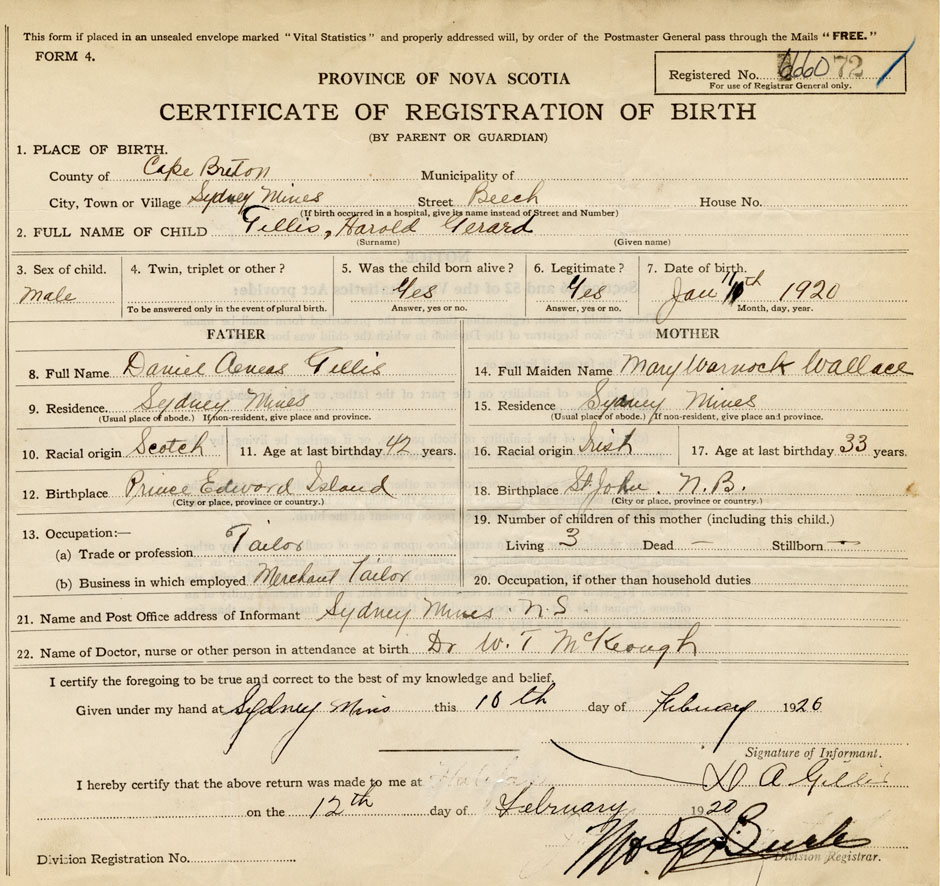 This form if placed in an unsealed envelope marked "Vital Statistics" and properly addressed will, by order of the Postmaster General pass through the Mails "FREE."
FORM 4.
Registered No. 72
For use of Registrar General only.
PROVINCE OF NOVA SCOTIA
CERTIFICATE OF REGISTRATION OF BIRTH
(BY PARENT OR GUARDIAN)
1. PLACE OF BIRTH.
County of Cape Breton Municipality of
City, Town or Village Sydney Mines Street Beech House No.
(If birth occurred in a hospital, give its name instead of Street and Number)
2. FULL NAME OF CHILD Gillis, Harold Gerard
(Surname) (Given name)
3. Sex of child. Male
4. Twin, triplet or other?
To be answered only in the event of plural birth.
5. Was the child born alive? Yes
Answer, yes or no.
6. Legitimate? Yes
Answer, yes or no.
7. Date of birth.
Jan 1920
Month, day, year.
FATHER
8. Full Name Daniel Aeneas Gillis
9. Residence. Sydney Mines
(Usual place of abode.) If non-resident, give place and province.
10. Racial origin Scotch 11. Age at last birthday 42 years.
12. Birthplace Prince Edward Island
(City or place, province or country.)
13. Occupation:—
(a) Trade or profession Tailor
(b) Business in which employed Merchant Tailor
MOTHER
14. Full Maiden Name Mary Warnock Wallace
15. Residence Sydney Mines
(Usual place of abode.) If non-resident, give place and province.
16. Racial origin Irish 17. Age at last birthday 33 years.
18. Birthplace St. John. N.B.
(City or place, province or country.)
19. Number of children of this mother (including this child.)
Living 3 Dead — Stillborn —
20. Occupation, if other than household duties
21. Name and Post Office address of Informant Sydney Mines N.S
22. Name of Doctor, nurse or other person in attendance at birth Dr W. T McKeough
I certify the foregoing to be true and correct to the best of my knowledge and belief.
Given under my hand at Sydney Mines this 10th day of February 1920
Signature of Informant.
D A Gillis
I hereby certify that the above return was made to me at Halifax
on the 12th day of February 1920
Division Registration No.
Division Registrar.